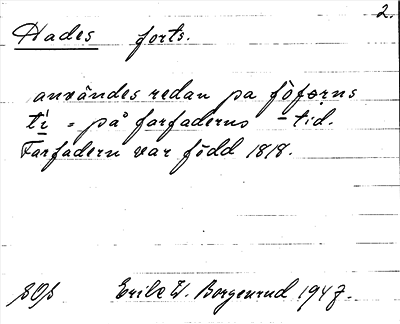 2.
Hades forts.
användes redan pa fòførns
tì = på farfaderns - tid.
Farfadern var född 1818.
SOS Erik W. Borgenrud 1947.